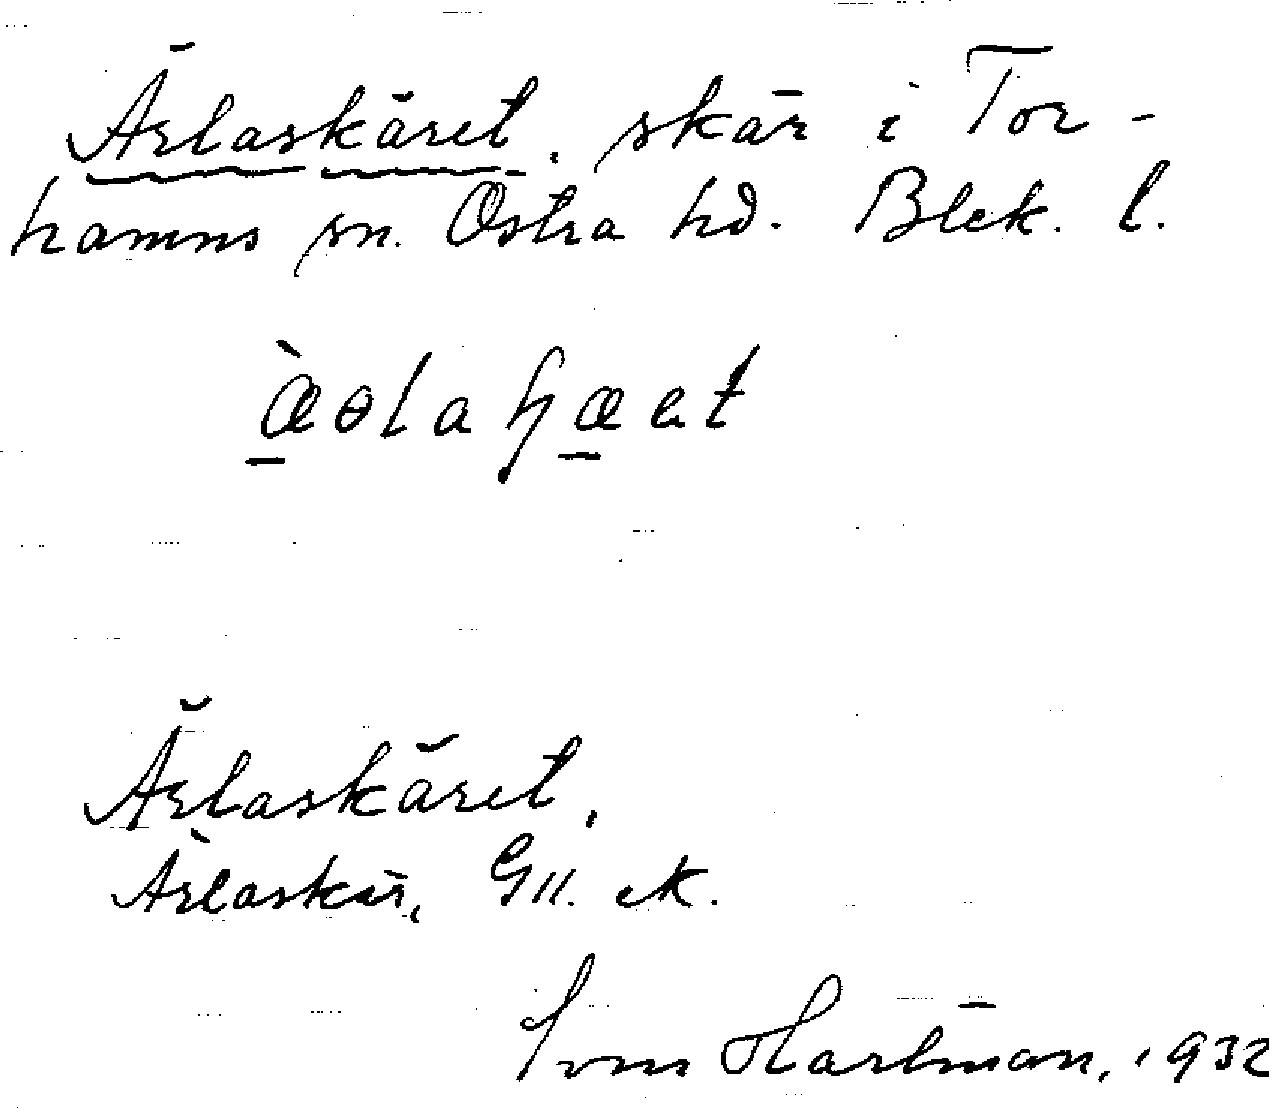 Ärlaskäret, skär i Tor-
hamns sn. Östra hd. Blek. l.
Ärlaskäret,
Ärlaskär, Gll. ek.
Hartman, 1932